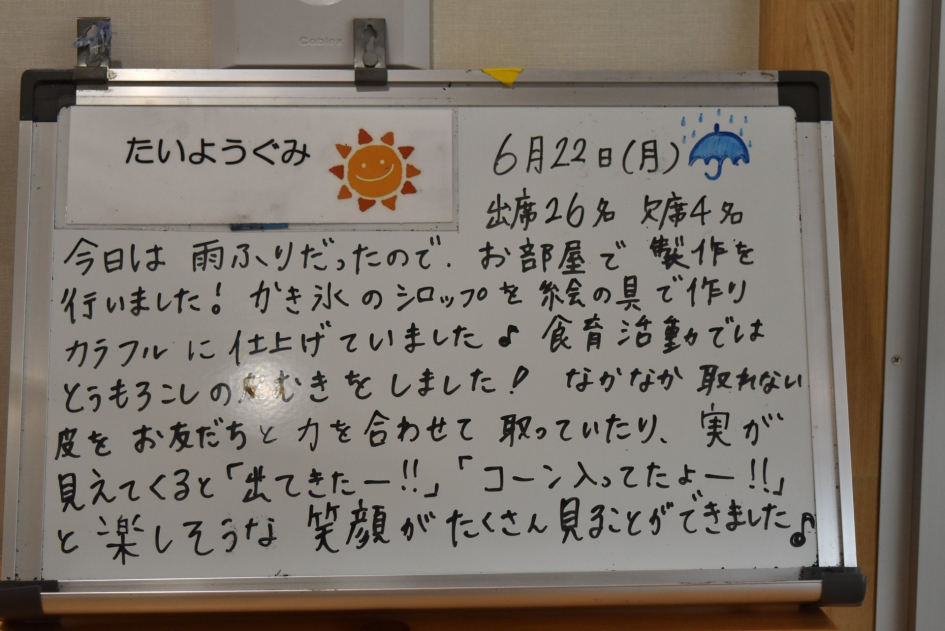 Cabinx
たいようぐみ
6月22日(月)
出席26名 欠席4名
今日は 雨ふりだったので、お部屋で 製作を
行いました! かき氷のシロップを 絵の具で作り
カラフルに 仕上げていました♪ 食育活動では
とうもろこしの むきをしました! なかなか 取れない
皮を お友だちと 力を合わせて 取っていたり、実が
見えてくると「出てきたー!!」「コーン入ってたよー!!」
と 楽しそうな 笑顔が たくさん見ることができました♪